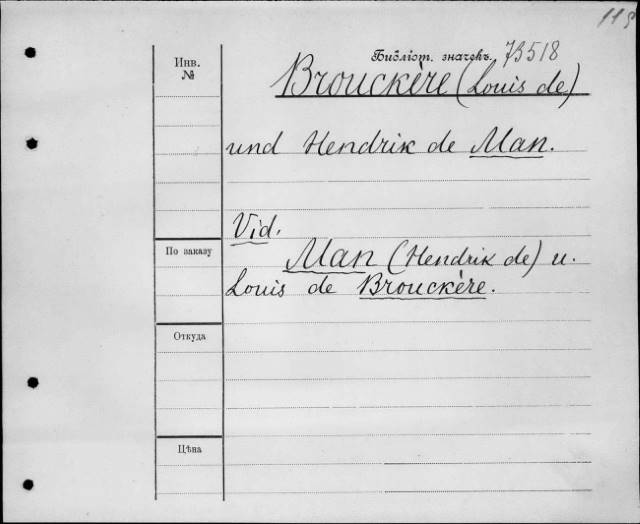 Инв.
№
Библіот. значекъ. 73518
Brouckère (Louis de)
und Hendrik de Man.
Vid.
Man (Hendrik de) u.
Louis de Brouckère.
По заказу
Откуда
Цѣна